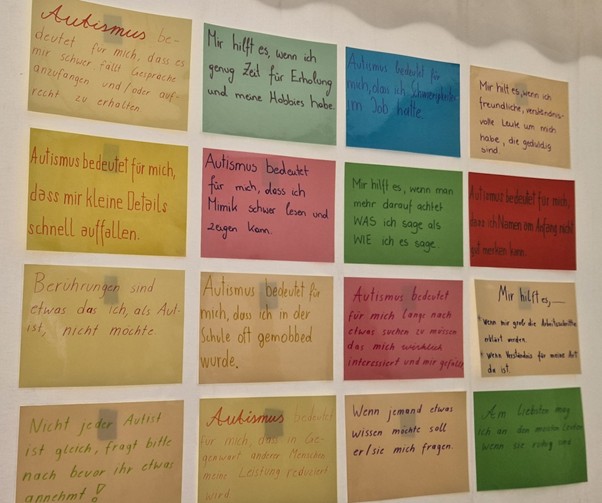 Autismus be-
deutet für mich, dass es
mir schwer fällt Gespräche
anzufangen und/oder auf-
recht zu erhalten
Mir hilft es, wenn ich
genug Zeit für Erholung
und meine Hobbies habe.
Autismus bedeutet für
mich, dass ich
im Job hatte.
Mir hilft es, wenn ich
freundliche, verständnis-
volle Leute um mich
habe, die geduldig
sind.
Autismus bedeutet für mich,
dass mir kleine Details
schnell auffallen.
Autismus bedeutet
für mich, dass ich
Mimik schwer lesen und
zeigen kann.
Mir hilft es, wenn man
mehr darauf achtet
WAS ich sage als
WIE ich es sage.
Autismus bedeutet für mich,
dass ich Namen am Anfang nicht
gut merken kann.
Berührungen sind
etwas das ich, als Aut-
ist, nicht möchte.
Autismus bedeutet für
mich, dass ich in der
Schule oft gemobbed
wurde.
Autismus bedeutet
für mich lange nach
etwas suchen zu müssen
das mich wirklich
interessiert und mir gefällt
Mir hilft es,
wenn mir groß die Arbeitsschritte
erklärt werden.
wenn Verständnis für meine Art
da ist.
Nicht jeder Autist
ist gleich, fragt bitte
nach bevor ihr etwas
annehmt!
Autismus bedeutet
für mich dass in Ge-
genwart anderer Menschen
meine Leistung reduziert
wird
Wenn jemand etwas
wissen möchte soll
er/sie mich fragen.
Am liebsten mag
ich an den meisten Leuten
wenn sie ruhig sind